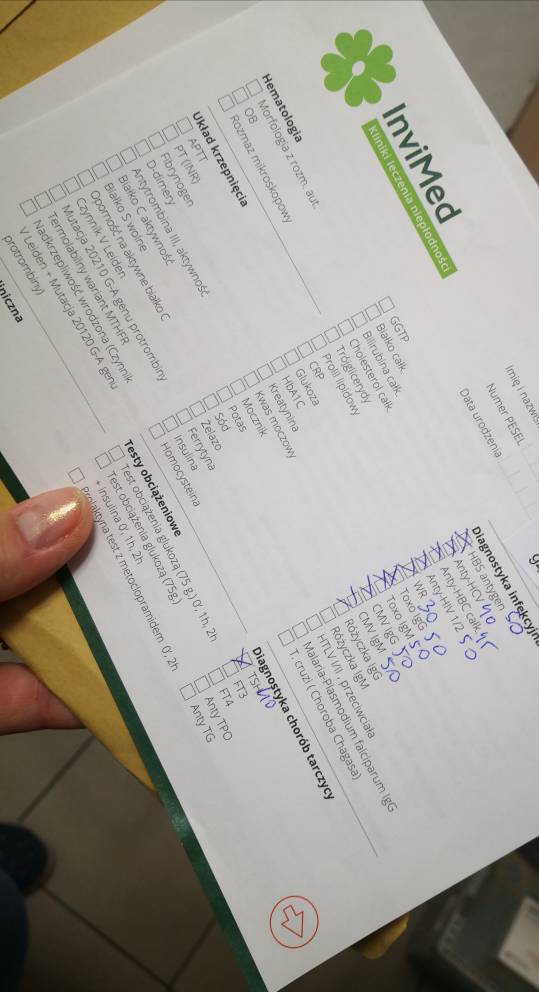 InviMed
Kliniki leczenia niepłodności
Imię i nazwis
Numer PESEL
Data urodzenia
Hematologia
Morfologia z rozm. aut.
OB
Rozmaz mikroskopowy
Układ krzepnięcia
APTT
PT (INR)
Fibrynogen
D-dimery
Antytrombina III, aktywność
Białko C aktywność
Białko S wolne
Oporność na aktywne białko C
Czynnik V Leiden
Mutacja 20210 G-A genu protrombiny
Termolabilny wariant MTHFR
Nadkrzepliwość wrodzona (Czynnik
V Leiden + Mutacja 20120 G-A genu
protrombiny)
liniczna
GGTP
Białko całk.
Bilirubina całk.
Cholesterol całk.
Trójglicerydy
Profil lipidowy
CRP
Glukoza
HbA1C
Kreatynina
Kwas moczowy
Mocznik
Potas
Sód
Żelazo
Ferrytyna
Insulina
Homocysteina
Testy obciążeniowe
Test obciążenia glukozą (75 g.) 0', 1h, 2h
Test obciążenia glukozą (75g.)
+ insulina 0', 1h, 2h
Prolaktyna test z metoclopramidem 0', 2h
Diagnostyka infekcyjna
HBS antygen 50
Anty-HCV 40
Anty-HBC całk. 45
Anty-HIV 1/2 50
WR 30
Toxo IgG 50
Toxo IgM 50
CMV IgG 50
CMV IgM 50
Różyczka IgG
Różyczka IgM
HTLV I/II, przeciwciała
Malaria-Plasmodium falciparum IgG
T. cruzi ( Choroba Chagasa)
Diagnostyka chorób tarczycy
TSH 40
FT3
FT4
Anty TPO
Anty TG